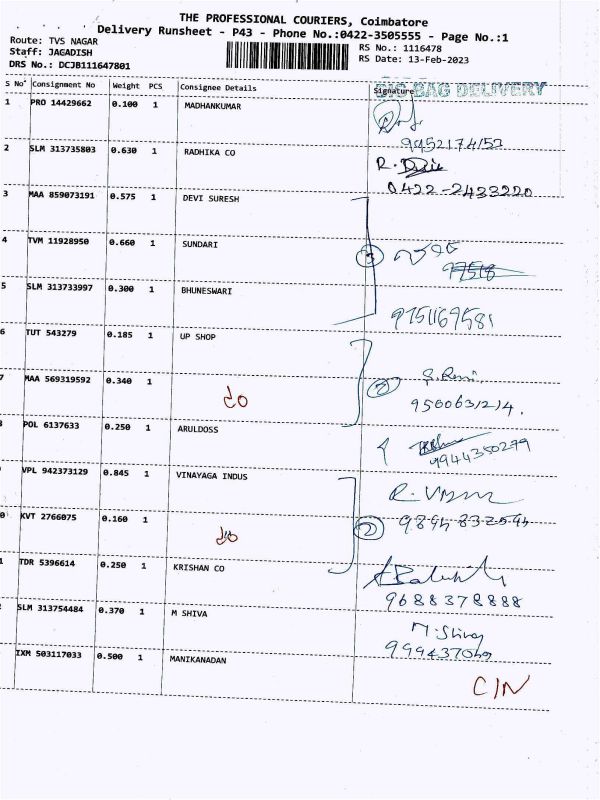 THE PROFESSIONAL COURIERS, Coimbatore
Delivery Runsheet - P43 - Phone No.:0422-3505555 - Page No.:1
Route: TVS NAGAR
Staff: JAGADISH
DRS No.: DCJB111647801
RS No.: 1116478
RS Date: 13-Feb-2023
BIG BAG DELIVERY
S No Consignment No Weight PCS Consignee Details Signature
1 PRO 14429662 0.100 1 MADHANKUMAR
9952174152
2 SLM 313735803 0.630 1 RADHIKA CO
R.
0422-2433220
3 MAA 859073191 0.575 1 DEVI SURESH
4 TVM 11928950 0.660 1 SUNDARI
3
5 SLM 313733997 0.300 1 BHUNESWARI
9751169581
6 TUT 543279 0.185 1 UP SHOP
7 MAA 569319592 0.340 1
2
9500631214.
POL 6137633 0.250 1 ARULDOSS
9944350279
VPL 942373129 0.845 1 VINAYAGA INDUS
0 KVT 2766075 0.160 1
2
1 TDR 5396614 0.250 1 KRISHAN CO
9688378888
SLM 313754484 0.370 1 M SHIVA
M. Shiva
IXM 503117033 0.500 1 MANIKANADAN
C/N